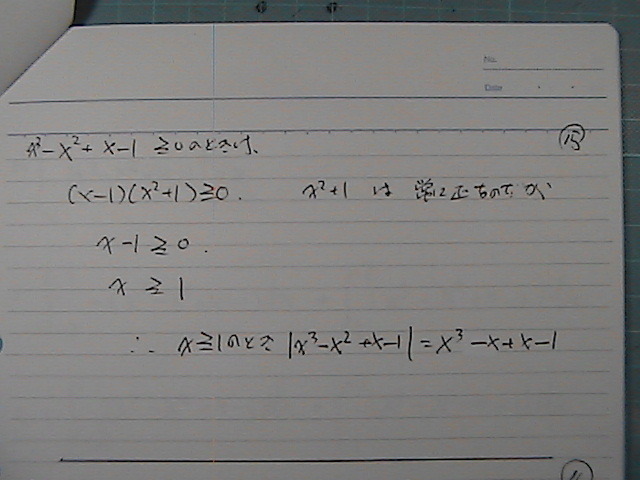 No.
Date
x³-x²+x-1 ≧0のときは、
⑮
(x-1)(x²+1)≧0. x²+1 は 常に正なので
x-1≧0.
x ≧ 1
∴ x≧1のとき |x³-x²+x-1|=x³-x+x-1